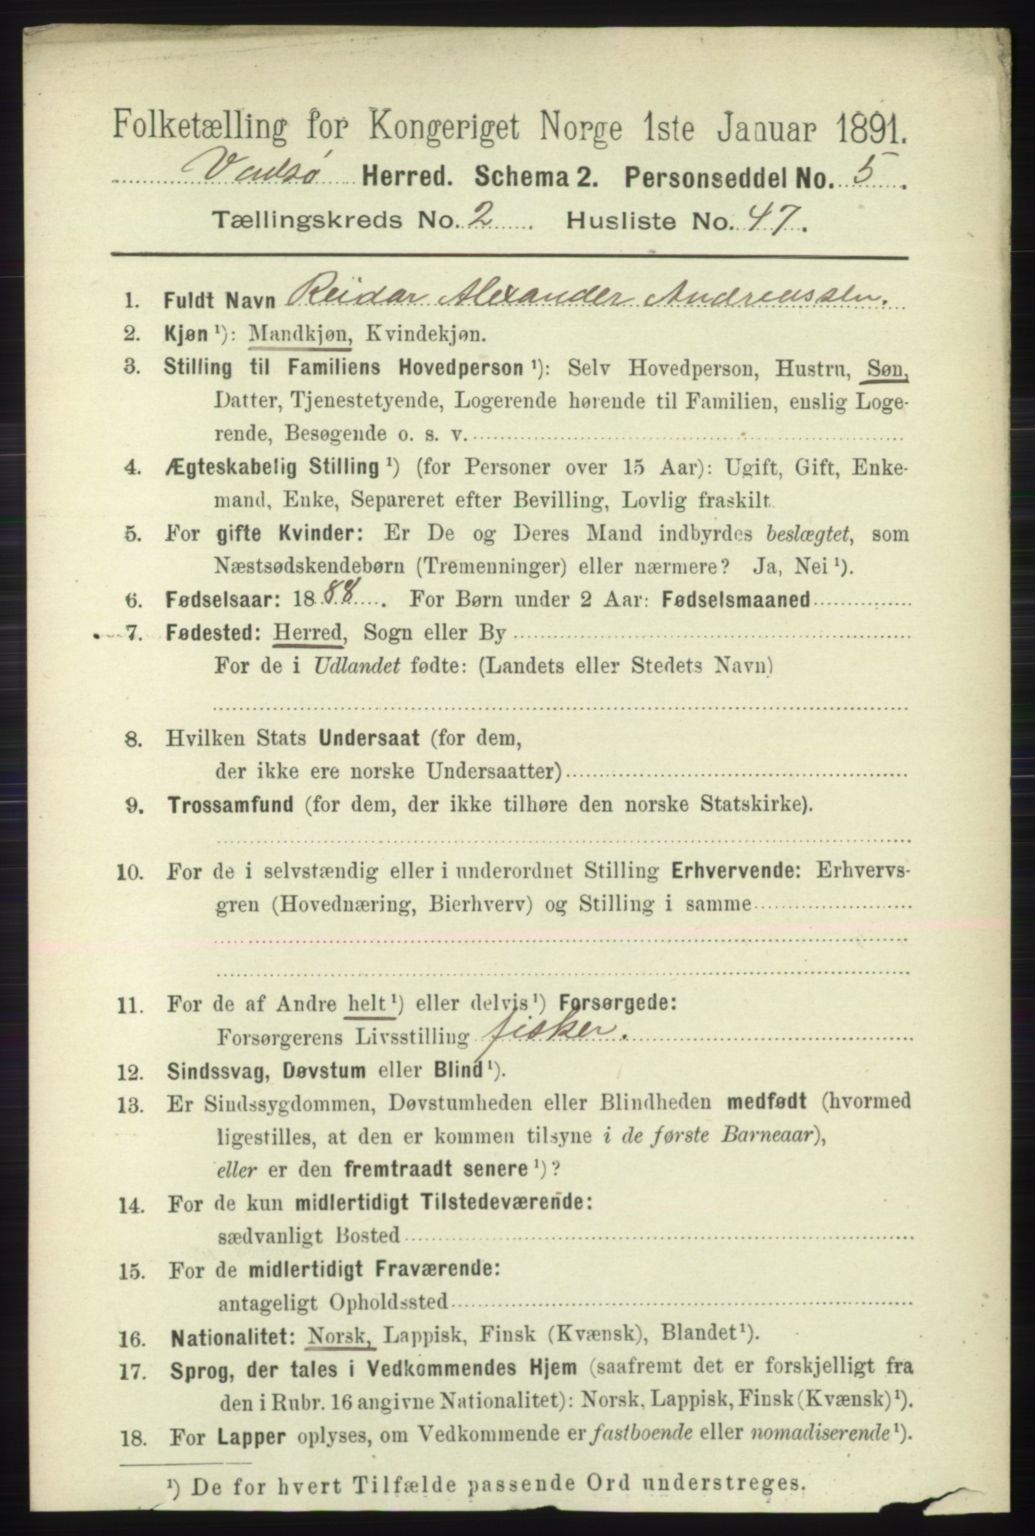 Folketælling for Kongeriget Norge 1ste Januar 1891.
Vadsø Herred. Schema 2. Personseddel No. 5.
Tællingskreds No. 2 Husliste No. 47.
1. Fuldt Navn Reidar Alexander Andreassen.
2. Kjøn ¹): Mandkjøn, Kvindekjøn.
3. Stilling til Familiens Hovedperson ¹): Selv Hovedperson, Hustru, Søn,
Datter, Tjenestetyende, Logerende hørende til Familien, enslig Loge-
rende, Besøgende o. s. v.
4. Ægteskabelig Stilling ¹) (for Personer over 15 Aar): Ugift, Gift, Enke-
mand, Enke, Separeret efter Bevilling, Lovlig fraskilt.
5. For gifte Kvinder: Er De og Deres Mand indbyrdes beslægtet, som
Næstsødskendebørn (Tremenninger) eller nærmere? Ja, Nei ¹).
6. Fødselsaar: 1888. For Børn under 2 Aar: Fødselsmaaned
7. Fødested: Herred, Sogn eller By
For de i Udlandet fødte: (Landets eller Stedets Navn)
8. Hvilken Stats Undersaat (for dem,
der ikke ere norske Undersaatter)
9. Trossamfund (for dem, der ikke tilhøre den norske Statskirke).
10. For de i selvstændig eller i underordnet Stilling Erhvervende: Erhvervs-
gren (Hovednæring, Bierhverv) og Stilling i samme
11. For de af Andre helt ¹) eller delvis ¹) Forsørgede:
Forsørgerens Livsstilling fisker.
12. Sindssvag, Døvstum eller Blind ¹).
13. Er Sindssygdommen, Døvstumheden eller Blindheden medfødt (hvormed
ligestilles, at den er kommen tilsyne i de første Barneaar),
eller er den fremtraadt senere ¹)?
14. For de kun midlertidigt Tilstedeværende:
sædvanligt Bosted
15. For de midlertidigt Fraværende:
antageligt Opholdssted
16. Nationalitet: Norsk, Lappisk, Finsk (Kvænsk), Blandet ¹).
17. Sprog, der tales i Vedkommendes Hjem (saafremt det er forskjelligt fra
den i Rubr. 16 angivne Nationalitet): Norsk, Lappisk, Finsk (Kvænsk) ¹).
18. For Lapper oplyses, om Vedkommende er fastboende eller nomadiserende ¹).
¹) De for hvert Tilfælde passende Ord understreges.